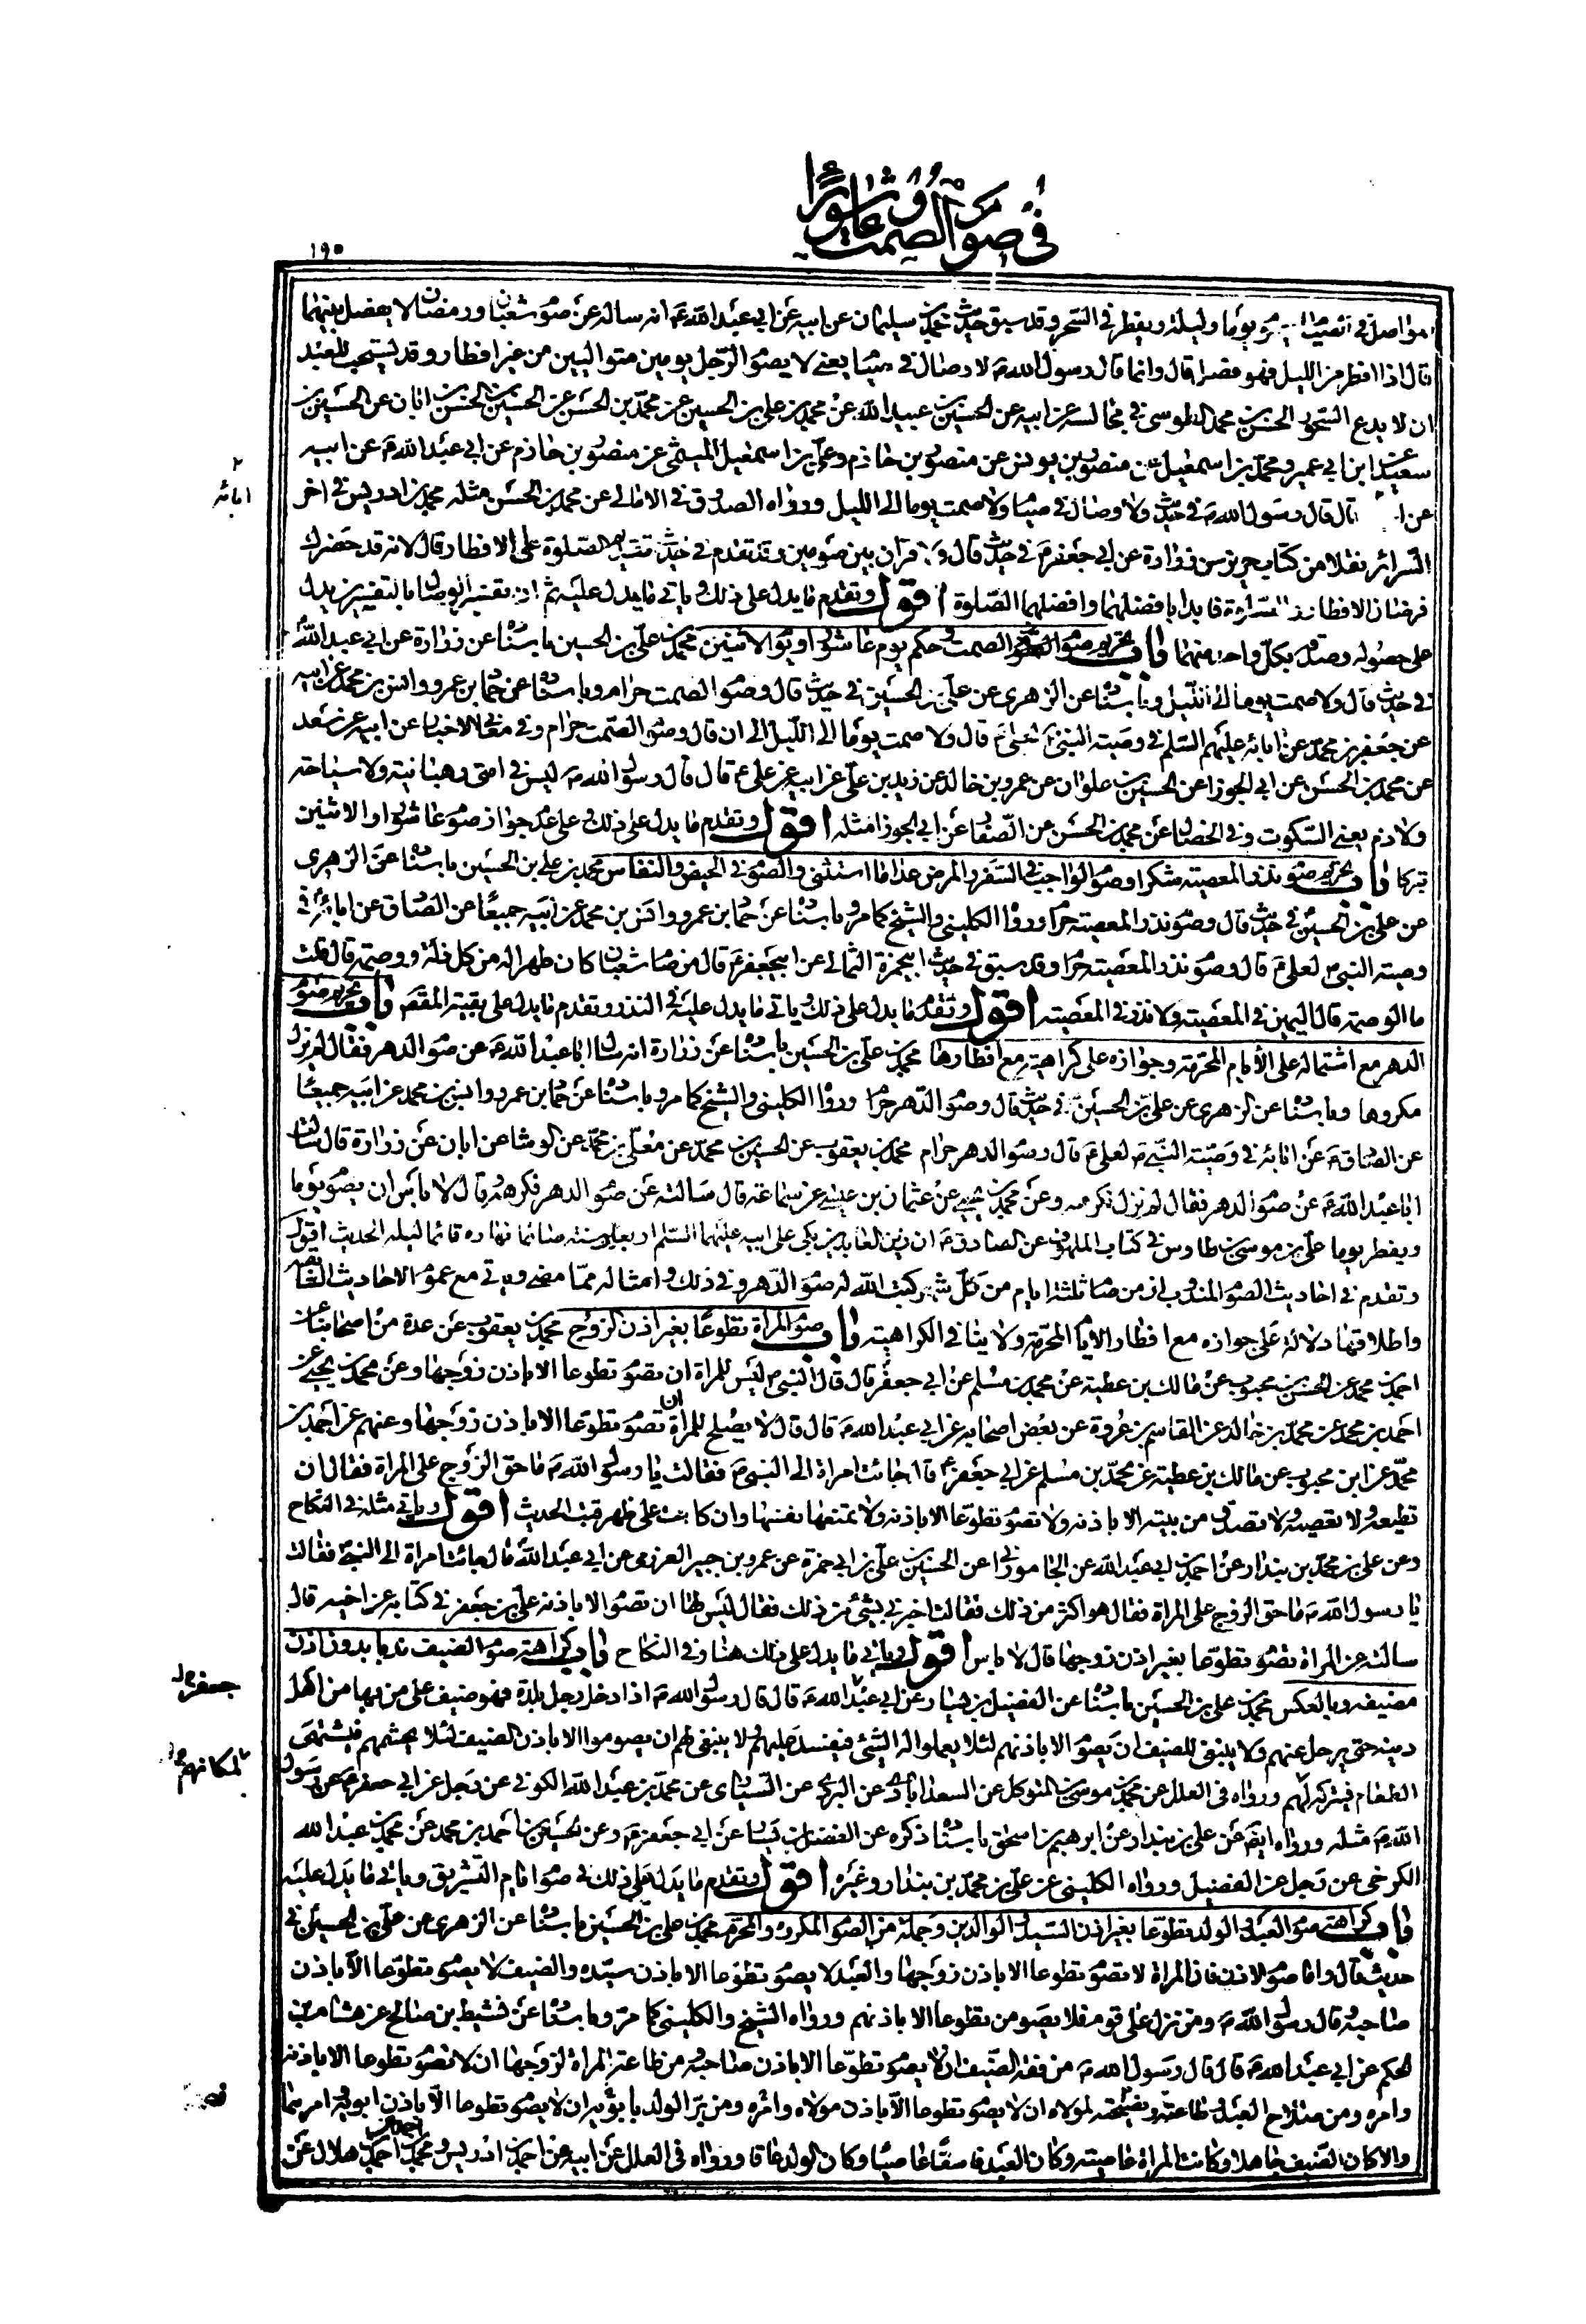 في صوم الصمت وعاشورا
١٩٥
المواصل في الصيام يصوم يوما وليلة ويفطر في السحر وقد سبق حديث محمد بن سليمان عن ابيه عن ابي عبد الله ع انه ساله عن صوم شعبان ورمضان لا يفصل بينهما
قال اذا افطر من الليل فهو فصل قال وانما قال رسول الله ص لا وصال في صيام يعني لا يصوم الرجل يومين متواليين من غير افطار وقد يستحب للعبد
ان لا يدع السحور الحسن بن محمد الطوسي في مجالسه عن ابيه عن الحسين بن عبيد الله عن محمد بن علي بن الحسين عن محمد بن الحسن عن الحسين بن الحسن بن ابان عن الحسين بن
سعيد عن ابن ابي عمير ومحمد بن اسمعيل عن منصور بن يونس عن منصور بن حازم وعلي بن اسمعيل الميثمي عن منصور بن حازم عن ابي عبد الله ع عن ابيه
عن قال قال رسول الله ص في حديث ولا وصال في صيام ولا صمت يوما الى الليل ورواه الصدوق في الامالي عن محمد بن الحسن مثله محمد بن ادريس في اخر
ابائه
السرائر نقلا من كتاب حريز عن زرارة عن ابي جعفر ع في حديث قال ولا قران بين صومين وقد تقدم في حديث تقديم الصلوة على الافطار قال لانه قد حضرك
فرضان الافطار والصلوة فابدا بافضلهما وافضلهما الصلوة اقول وتقدم ما يدل على ذلك وياتي ما يدل عليه ثم ان تفسير الوصال بالتفسيرين يدل
على حصوله وصدقه بكل واحد منهما باب تحريم صوم الصمت وحكم يوم عاشورا ويوم الاثنين محمد بن علي بن الحسين باسناده عن زرارة عن ابي عبد الله ع
في حديث قال ولا صمت يوما الى الليل وباسناده عن الزهري عن علي بن الحسين ع في حديث قال وصوم الصمت حرام وباسناده عن حماد بن عمرو وانس بن محمد عن ابيه
عن جعفر بن محمد عن ابائه عليهم السلم في وصية النبي ص لعلي ع قال ولا صمت يوما الى الليل الى ان قال وصوم الصمت حرام وفي معاني الاخبار عن ابيه عن سعد
عن محمد بن الحسن عن ابي الجوزا عن الحسين بن علوان عن عمرو بن خالد عن زيد بن علي عن ابيه عن علي ع قال قال رسول الله ص ليس في امتي رهبانية ولا سياحة
ولا ذم يعني السكوت وفي الخصال عن محمد بن الحسن عن الصفار عن ابي الجوزا مثله اقول وتقدم ما يدل على ذلك وعلى عدم جواز صوم عاشورا والاثنين
تبركا باب تحريم صوم نذر المعصية شكرا وصوم الواجب في السفر والمرض عدا ما استثنى والصوم في الحيض والنفاس محمد بن علي بن الحسين باسناده عن الزهري
عن علي بن الحسين ع في حديث قال وصوم نذر المعصية حرام ورواه الكليني والشيخ كما مر وباسناده عن حماد بن عمرو وانس بن محمد عن ابيه جميعا عن الصادق عن ابائه في
وصية النبي ص لعلي ع قال وصوم نذر المعصية حرام وقد سبق في حديث ابي حمزة الثمالي عن ابي جعفر ع قال من صام شعبان كان طهرا له من كل زلة ووصمة قال قلت
ما الوصمة قال اليمين في المعصية ولا نذر في المعصية اقول وتقدم ما يدل على ذلك وياتي ما يدل عليه في النذر وتقدم ما يدل على بقية المقصود باب تحريم صوم
الدهر مع اشتماله على الايام المحرمة وجوازه على كراهية مع افطارها محمد بن علي بن الحسين باسناده عن زرارة انه سال ابا عبد الله ع عن صوم الدهر فقال لم يزل
مكروها وباسناده عن الزهري عن علي بن الحسين ع في حديث قال وصوم الدهر حرام ورواه الكليني والشيخ كما مر وباسناده عن حماد بن عمرو وانس بن محمد عن ابيه جميعا
عن الصادق ع عن ابائه في وصية النبي ص لعلي ع قال وصوم الدهر حرام محمد بن يعقوب عن الحسين بن محمد عن معلى بن محمد عن الوشا عن ابان عن زرارة قال سالت
ابا عبد الله ع عن صوم الدهر فقال لم نزل نكرهه وعن محمد بن يحيى عن عثمان بن عيسى عن سماعة قال سالته عن صوم الدهر فكرهه وقال لا باس ان يصوم يوما
ويفطر يوما علي بن موسى بن طاوس في كتاب الملهوف عن الصادق ع ان زين العابدين بكى على ابيه عليهما السلم اربعين سنة صائما نهاره قائما ليله الحديث اقول
وتقدم في احاديث الصوم المندوب ان من صام ثلثة ايام من كل شهر كتب الله له صوم الدهر وفي ذلك وامثاله مما مضى وياتي مع عموم الاحاديث
واطلاقها دلالة على جوازه مع افطار الايام المحرمة ولا ينافي الكراهية باب صوم المراة تطوعا بغير اذن الزوج محمد بن يعقوب عن عدة من اصحابنا عن
احمد بن محمد عن الحسن بن محبوب عن مالك بن عطية عن محمد بن مسلم عن ابي جعفر ع قال قال النبي ص ليس للمراة ان تصوم تطوعا الا باذن زوجها وعن محمد بن يحيى عن
احمد بن محمد عن محمد بن خالد عن القاسم بن عروة عن بعض اصحابه عن ابي عبد الله ع قال قال لا يصلح للمراة ان تصوم تطوعا الا باذن زوجها وعنهم عن احمد بن
محمد عن ابن محبوب عن مالك بن عطية عن محمد بن مسلم عن ابي جعفر ع قال جائت امراة الى النبي ص فقالت يا رسول الله ص ما حق الزوج على المراة فقال ان
تطيعه ولا تعصيه ولا تصدق من بيته الا باذنه ولا تصوم تطوعا الا باذنه ولا تمنعها نفسها وان كانت على ظهر قتب الحديث اقول وياتي مثله في النكاح
وعن علي بن محمد بن بندار عن احمد بن ابي عبد الله عن الجاموراني عن الحسن بن علي بن ابي حمزة عن عمرو بن جبير العزرمي عن ابي عبد الله قال جائت امراة الى النبي ص فقالت
يا رسول الله ص ما حق الزوج على المراة فقال هو اكثر من ذلك فقالت اخبرني بشئ من ذلك فقال ليس لها ان تصوم الا باذنه علي بن جعفر في كتابه عن اخيه قال
سالته عن المراة تصوم تطوعا بغير اذن زوجها قال لا باس اقول وياتي ما يدل على ذلك هنا وفي النكاح باب كراهة صوم الضيف ندبا بدون اذن
مضيفه وبالعكس محمد بن علي بن الحسين باسناده عن الفضيل بن يسار عن ابي عبد الله ع قال قال رسول الله ص اذا دخل رجل بلدة فهو ضيف على من بها من اهل
جعفر
دينه حتى يرحل عنهم ولا ينبغي للضيف ان يصوم الا باذنهم لئلا يعملوا له الشئ فيفسد عليهم ولا ينبغي لهم ان يصوموا الا باذن الضيف لئلا يحشمهم فيشتهي
الطعام فيتركه لهم ورواه في العلل عن محمد بن موسى بن المتوكل عن السعد ابادي عن البرقي عن السياري عن محمد بن عبد الله الكوفي عن رجل عن ابي جعفر ع عن رسول
لمكانهم
الله ص مثله ورواه ايضا عن علي بن بندار عن ابرهيم بن اسحق باسناده ذكره عن الفضيل بن يسار عن ابي جعفر ع وعن الحسين بن احمد بن محمد عن محمد بن عبد الله
الكرخي عن رجل عن الفضيل ورواه الكليني عن علي بن محمد بن بندار وغيره اقول وتقدم ما يدل على ذلك في صوم ايام التشريق وياتي ما يدل عليه
باب كراهة صوم العبد والولد تطوعا بغير اذن السيد والوالدين وجملة من الصوم المكروه والمحرم محمد بن علي بن الحسين باسناده عن الزهري عن علي بن الحسين ع في
حديث قال واما صوم الاذن فان المراة لا تصوم تطوعا الا باذن زوجها والعبد لا يصوم تطوعا الا باذن سيده والضيف لا يصوم تطوعا الا باذن
صاحبه قال رسول الله ص ومن نزل على قوم فلا يصومن تطوعا الا باذنهم ورواه الشيخ والكليني كما مر وباسناده عن نشيط بن صالح عن هشام بن
الحكم عن ابي عبد الله ع قال قال رسول الله ص من فقه الضيف ان لا يصوم تطوعا الا باذن صاحبه ومن طاعة المراة لزوجها ان لا تصوم تطوعا الا باذنه
وامره ومن صلاح العبد وطاعته ونصيحته لمولاه ان لا يصوم تطوعا الا باذن مولاه وامره ومن بر الولد بابويه ان لا يصوم تطوعا الا باذن ابويه وامرهما
والا كان الضيف جاهلا وكانت المراة عاصية وكان العبد فاسقا عاصيا وكان الولد عاقا ورواه في العلل عن ابيه عن احمد بن ادريس عن محمد بن احمد عن احمد بن هلال عن